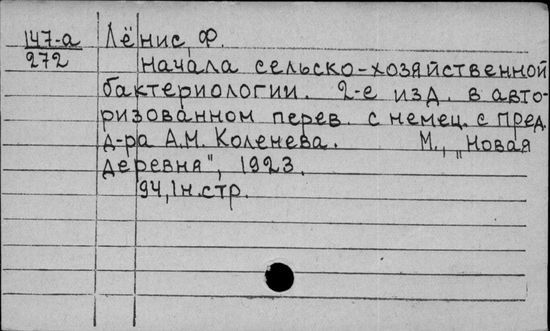 147-а Лёнис, Ф.
272
Начала сельско-хозяйственной
бактериологии. 2-е изд. в авто-
ризованном перев. с немец. с пред.
д-ра А.М. Коленева. М., „Новая
деревня", 1923.
94, 1 н. стр.